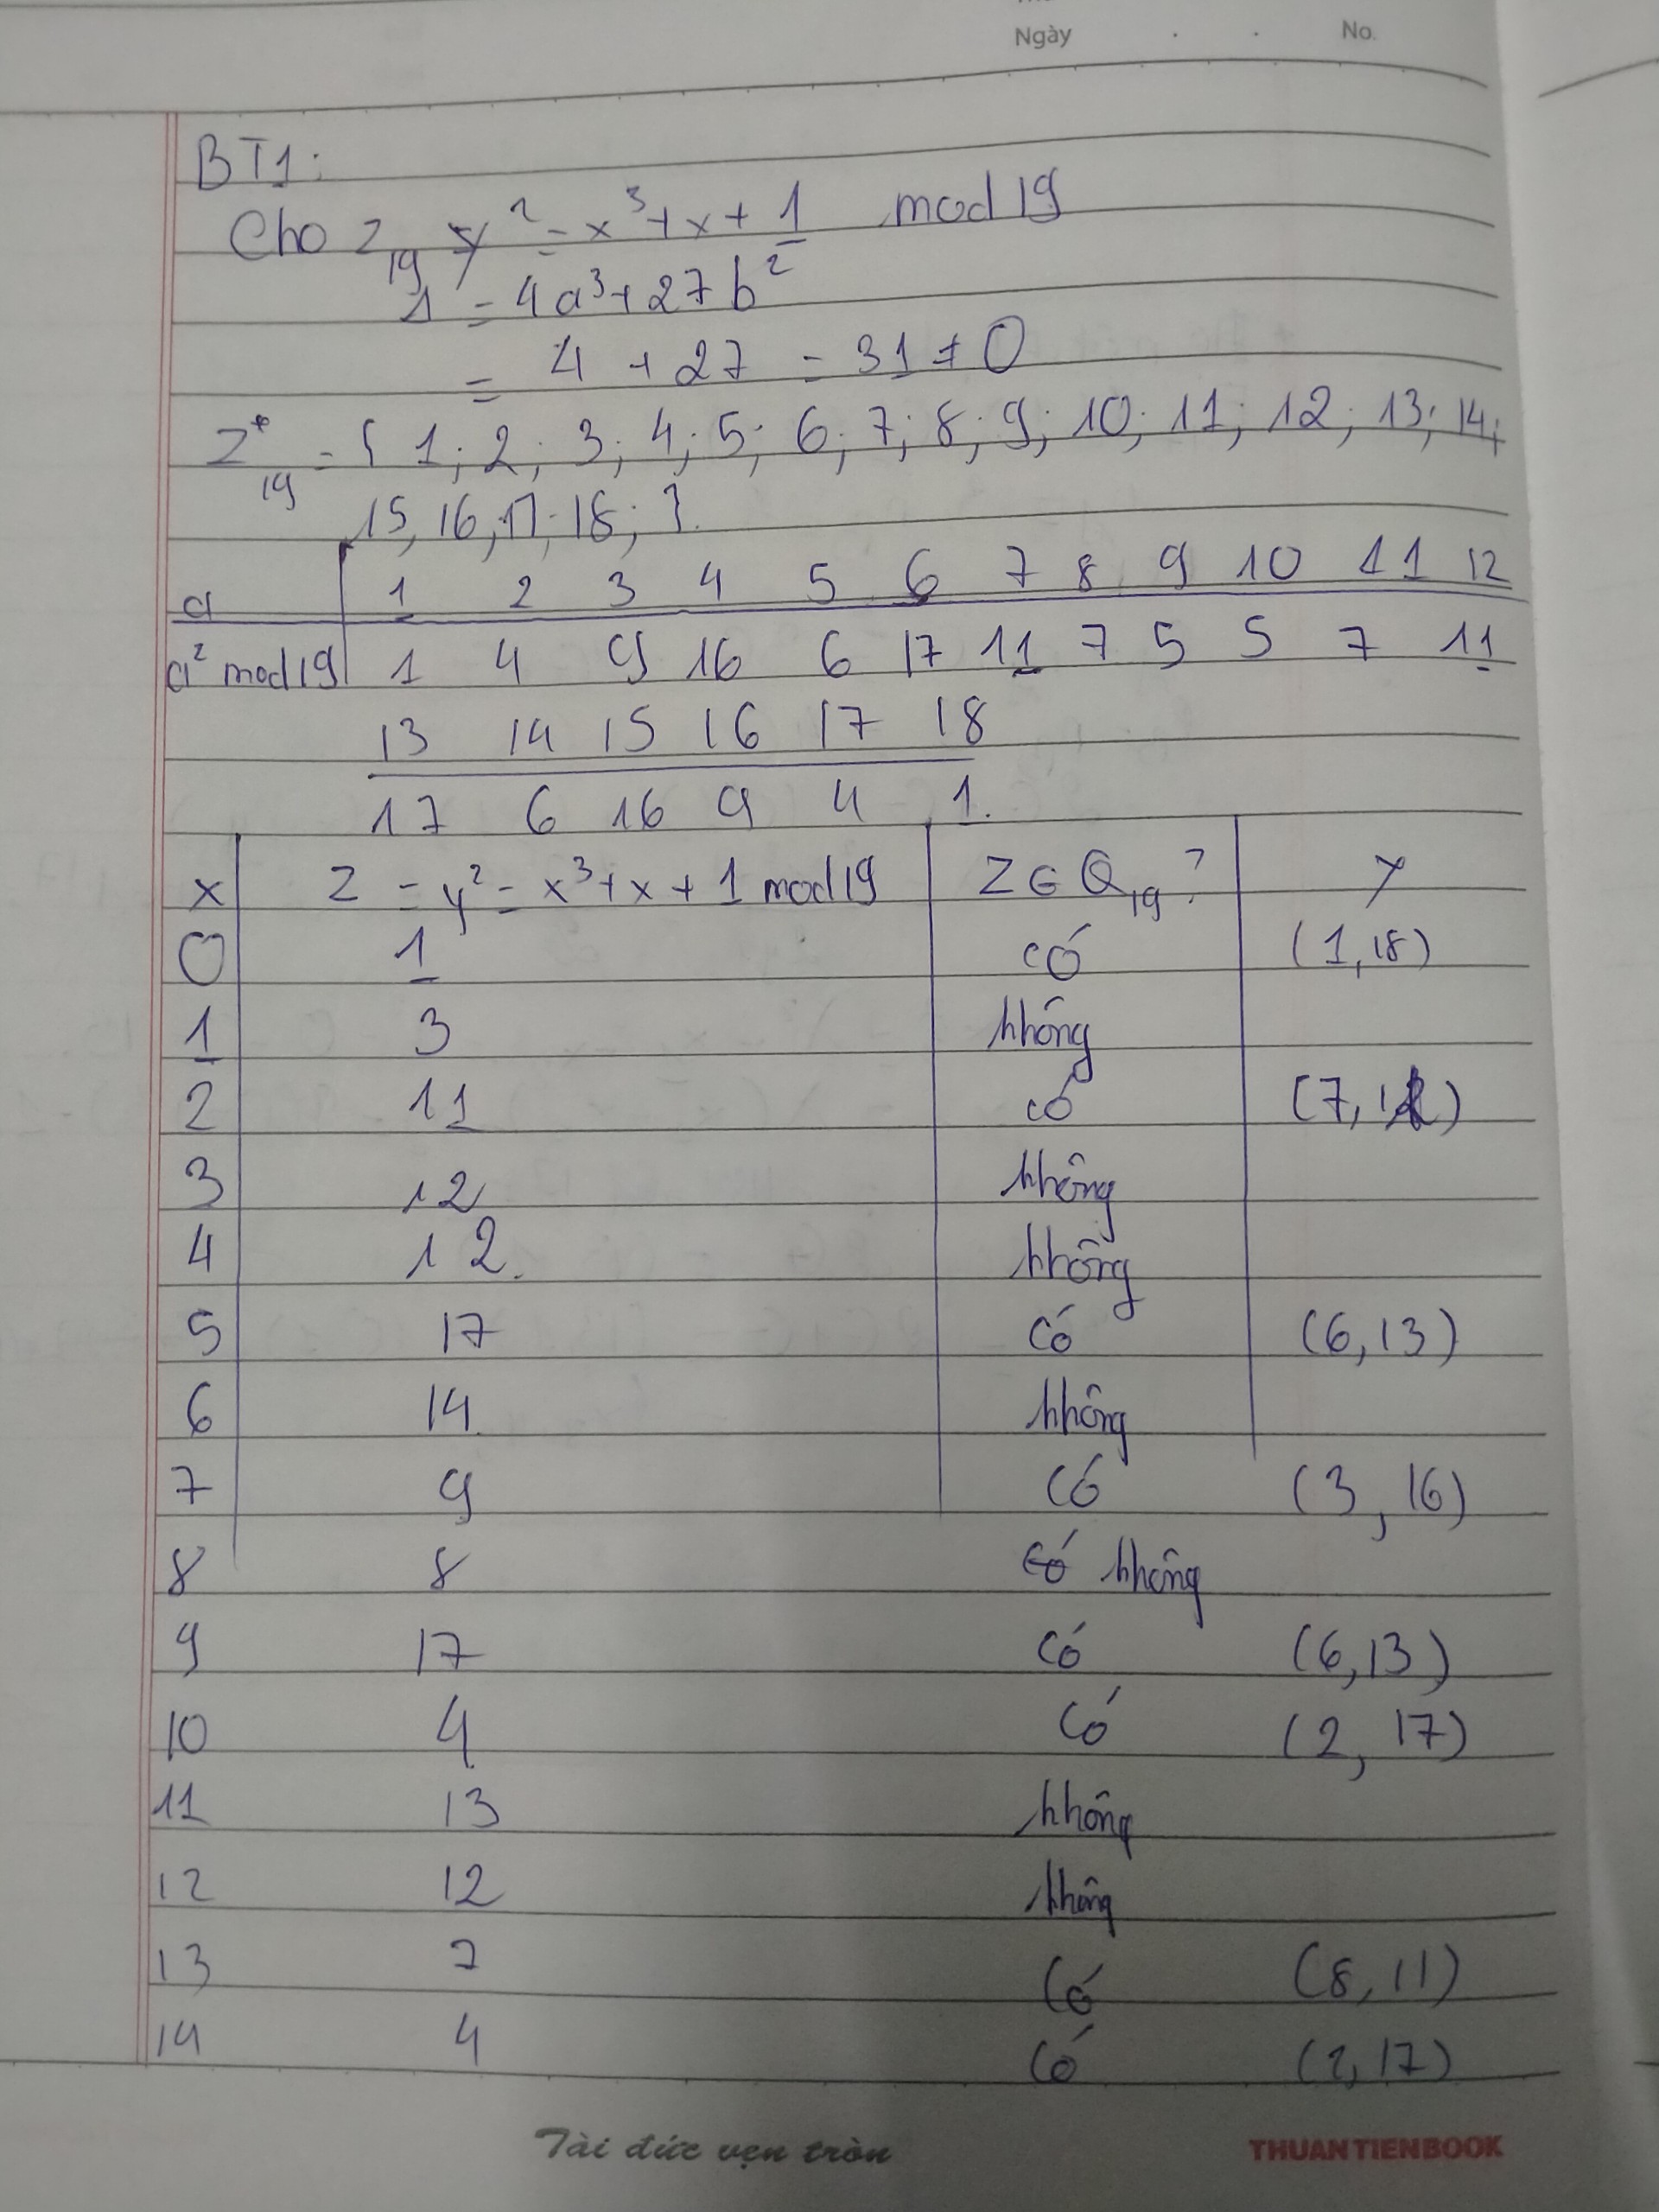 Ngày . . No.
BT1:
Cho Z₁₉ y² = x³ + x + 1 mod 19
1 = 4a³ + 27b²
= 4 + 27 = 31 ≠ 0
Z*₁₉ = { 1; 2; 3; 4; 5; 6; 7; 8; 9; 10; 11; 12; 13; 14;
15, 16, 17, 18; }.
a 1 2 3 4 5 6 7 8 9 10 11 12
a² mod 19 1 4 9 16 6 17 11 7 5 5 7 11
13 14 15 16 17 18
17 6 16 9 4 1.
x Z = y² = x³ + x + 1 mod 19 Z ∈ Q₁₉? y
0 1 có (1, 18)
1 3 không
2 11 có (7, 12)
3 12 không
4 12. không
5 17 có (6, 13)
6 14 không
7 9 có (3, 16)
8 8 có không
9 17 có (6, 13)
10 4 có (2, 17)
11 13 không
12 12 không
13 7 có (8, 11)
14 4 có (2, 17)
Tài đức vẹn tròn THUAN TIEN BOOK